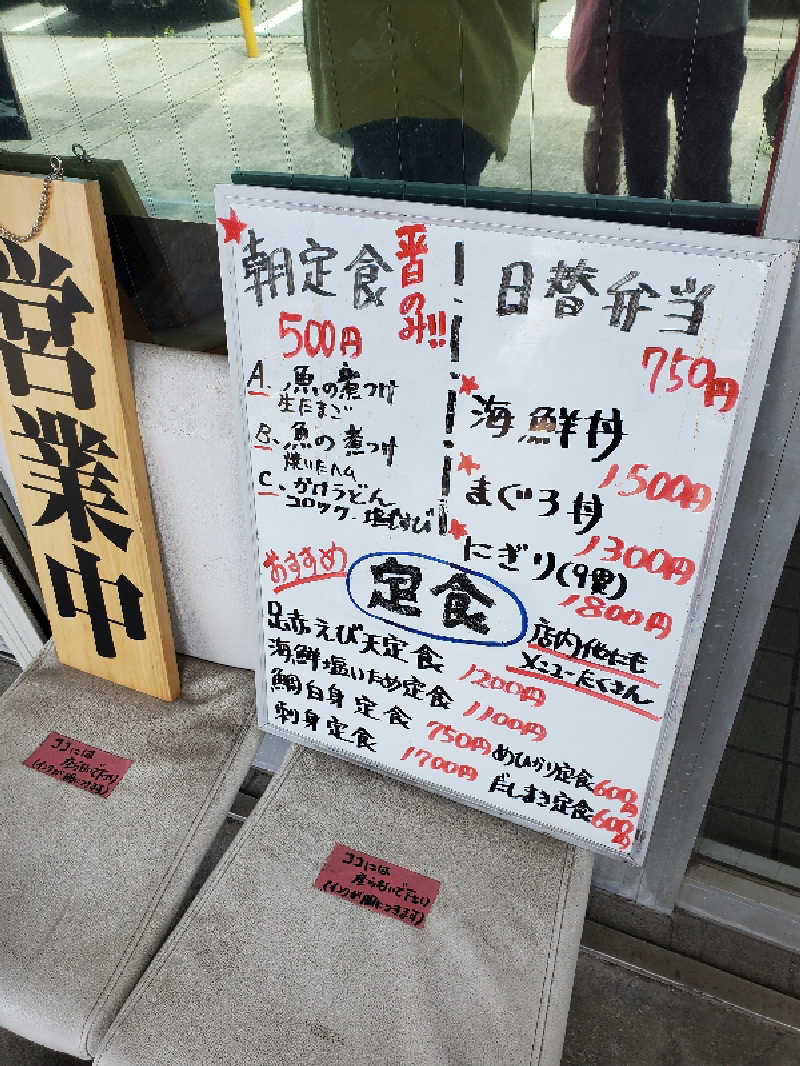 営業中
★朝定食
平日のみ!!
500円
A. 魚の煮つけ
生たまご
B. 魚の煮つけ
焼いたハム
C. かけうどん
コロッケ・塩むすび
日替弁当
750円
★海鮮丼
1500円
★まぐろ丼
1300円
★にぎり(9貫)
1800円
おすすめ
定食
店内他にも
メニューたくさん
足赤えび天定食
1200円
海鮮塩いため定食
1100円
鯛白身定食
750円
刺身定食
1700円
めひかり定食
600円
だしまき定食
600円
ココには
座らないで下さい
(インクが服につきます)
ココには
座らないで下さい
(インクが服につきます)